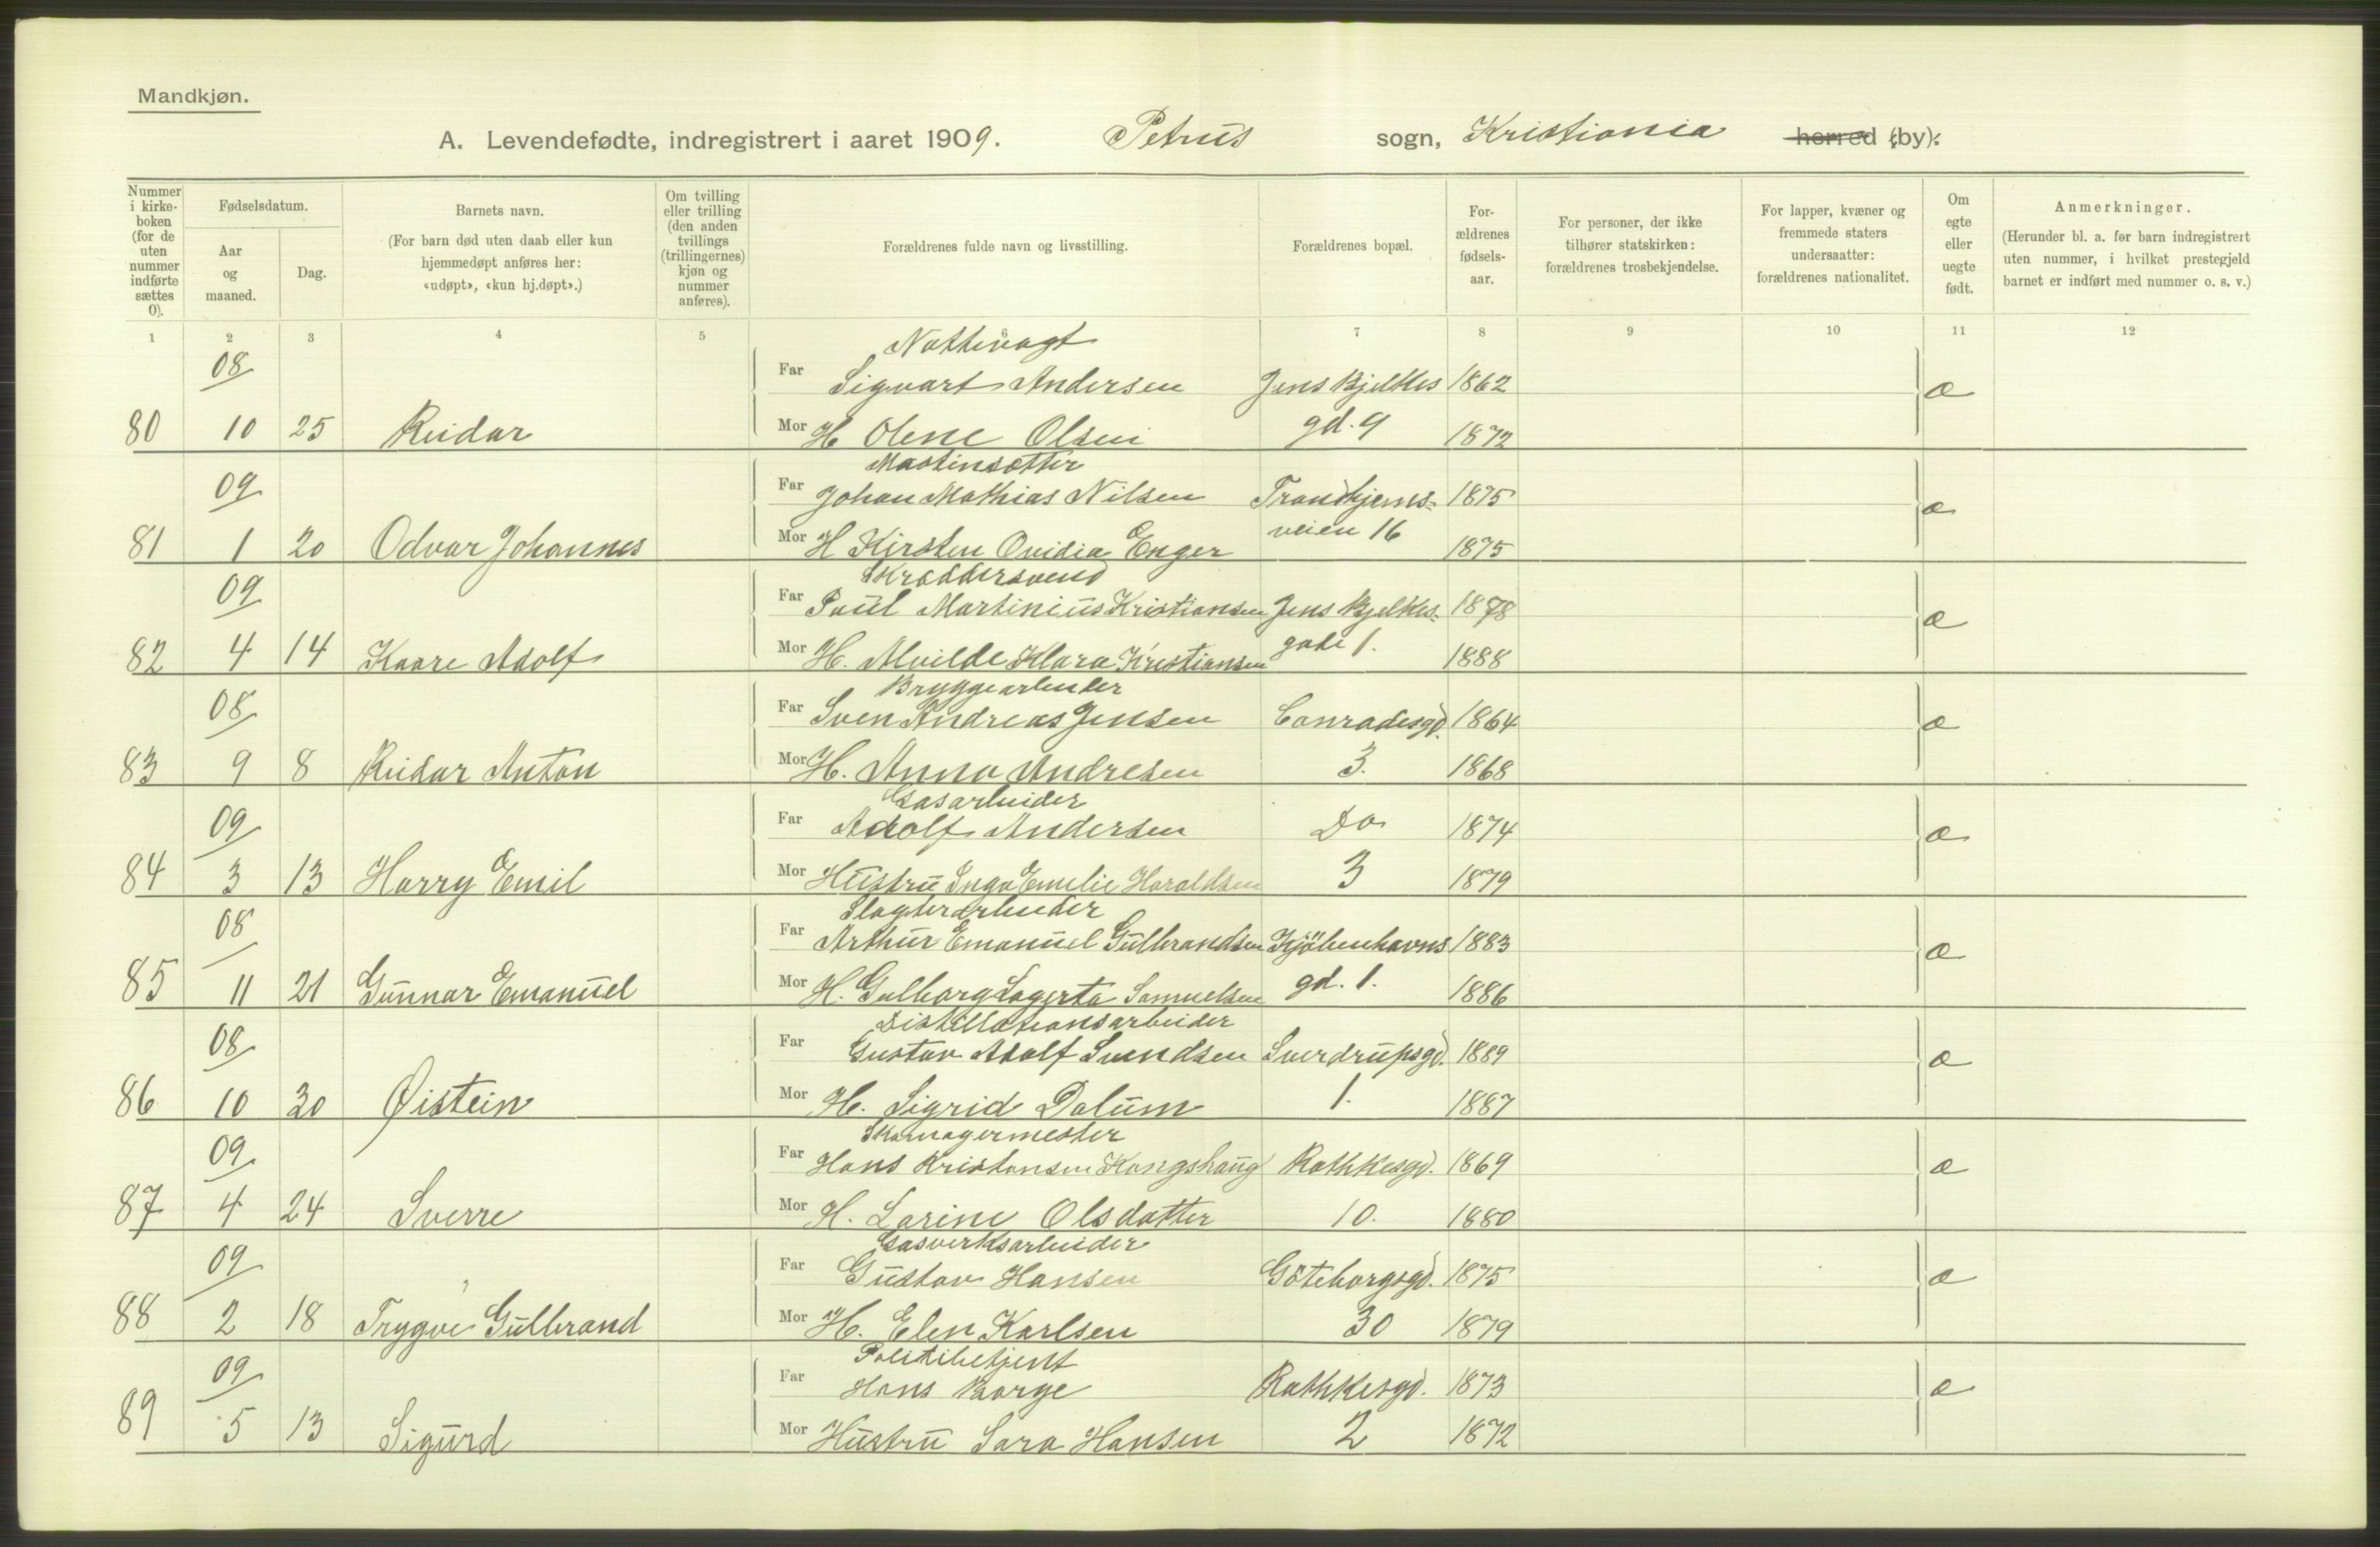 Mandkjøn.
A. Levendefødte, indregistrert i aaret 1909. Petrus sogn, Kristiania herred (by).
Nummer i kirkeboken (for de uten nummer indførte sættes 0).
Fødselsdatum.
Aar og maaned.
Dag.
Barnets navn.
(For barn død uten daab eller kun hjemmedøpt anføres her: «udøpt», «kun hj.døpt».)
Om tvilling eller trilling (den anden tvillings (trillingernes) kjøn og nummer anføres).
Forældrenes fulde navn og livsstilling.
Forældrenes bopæl.
Forældrenes fødselsaar.
For personer, der ikke tilhører statskirken: forældrenes trosbekjendelse.
For lapper, kvæner og fremmede staters undersaatter: forældrenes nationalitet.
Om egte eller uegte født.
Anmerkninger.
(Herunder bl. a. for barn indregistrert uten nummer, i hvilket prestegjeld barnet er indført med nummer o. s. v.)
1 2 3 4 5 7 8 9 10 11 12
Nattevagt
08 Far Sigvart Andersen Jens Bjelkes 1862 æ
80 10 25 Reidar Mor H Olene Olsen gd. 9 1872
Maskinsætter
09 Far Johan Mathias Nilsen Trondhjems- 1875 æ
81 1 20 Odvar Johannes Mor H Kirsten Ovidia Enger veien 16 1875
Skræddersvend
09 Far Paul Martinius Kristiansen Jens Bjelkes- 1878 æ
82 4 14 Kaare Adolf Mor H. Alvilde Klara Kristiansen gade 1. 1888
Bryggearbeider
08 Far Sven Andreas Jensen Conradesgd. 1864 æ
83 9 8 Reidar Anton Mor H. Anna Andresen 3. 1868
Gasarbeider
09 Far Adolf Andersen Do 1874 æ
84 3 13 Harry Emil Mor Hustru Inga Emelie Haraldsen 3 1879
Slagterarbeider
08 Far Arthur Emanuel Gulbrandsen Kjöbenhavns 1883 æ
85 11 21 Gunnar Emanuel Mor H. Gulborg Lagerta Samuelsen gd. 1. 1886
Distillationsarbeider
08 Far Gustav Adolf Svendsen Sverdrupsgd. 1889 æ
86 10 30 Øistein Mor H. Sigrid Dalum 1. 1887
Skomagermester
09 Far Hans Kristansen Kongshaug Rathkesgd. 1869 æ
87 4 24 Sverre Mor H. Larine Olsdatter 10. 1880
Gasverksarbeider
09 Far Gustav Hansen Göteborgsgd. 1875 æ
88 2 18 Trygve Gulbrand Mor H. Elen Karlsen 30 1879
Politibetjent
09 Far Hans Borge Rathkesgd. 1873 æ
89 5 13 Sigurd Mor Hustru Sara Hansen 2 1872